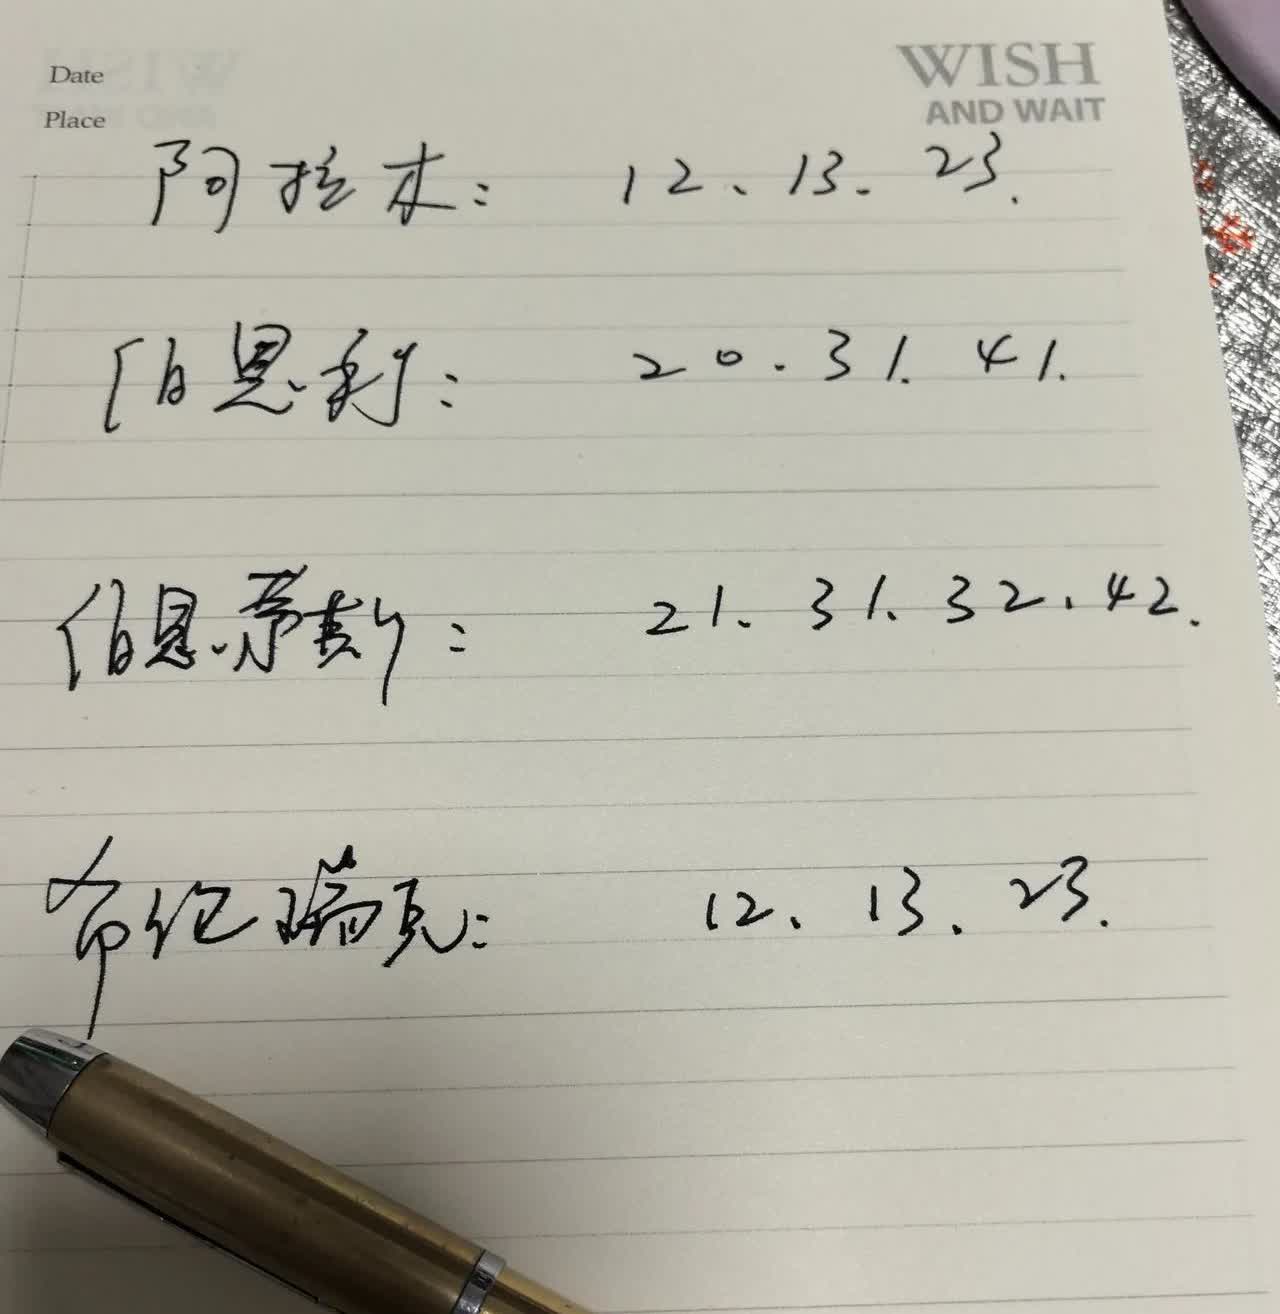 Date
WISH
Place
AND WAIT
阿拉木: 12、13. 23.
伯恩利: 20.31.41.
伯恩茅斯: 21.31.32.42.
布伦瑞克: 12、13. 23.